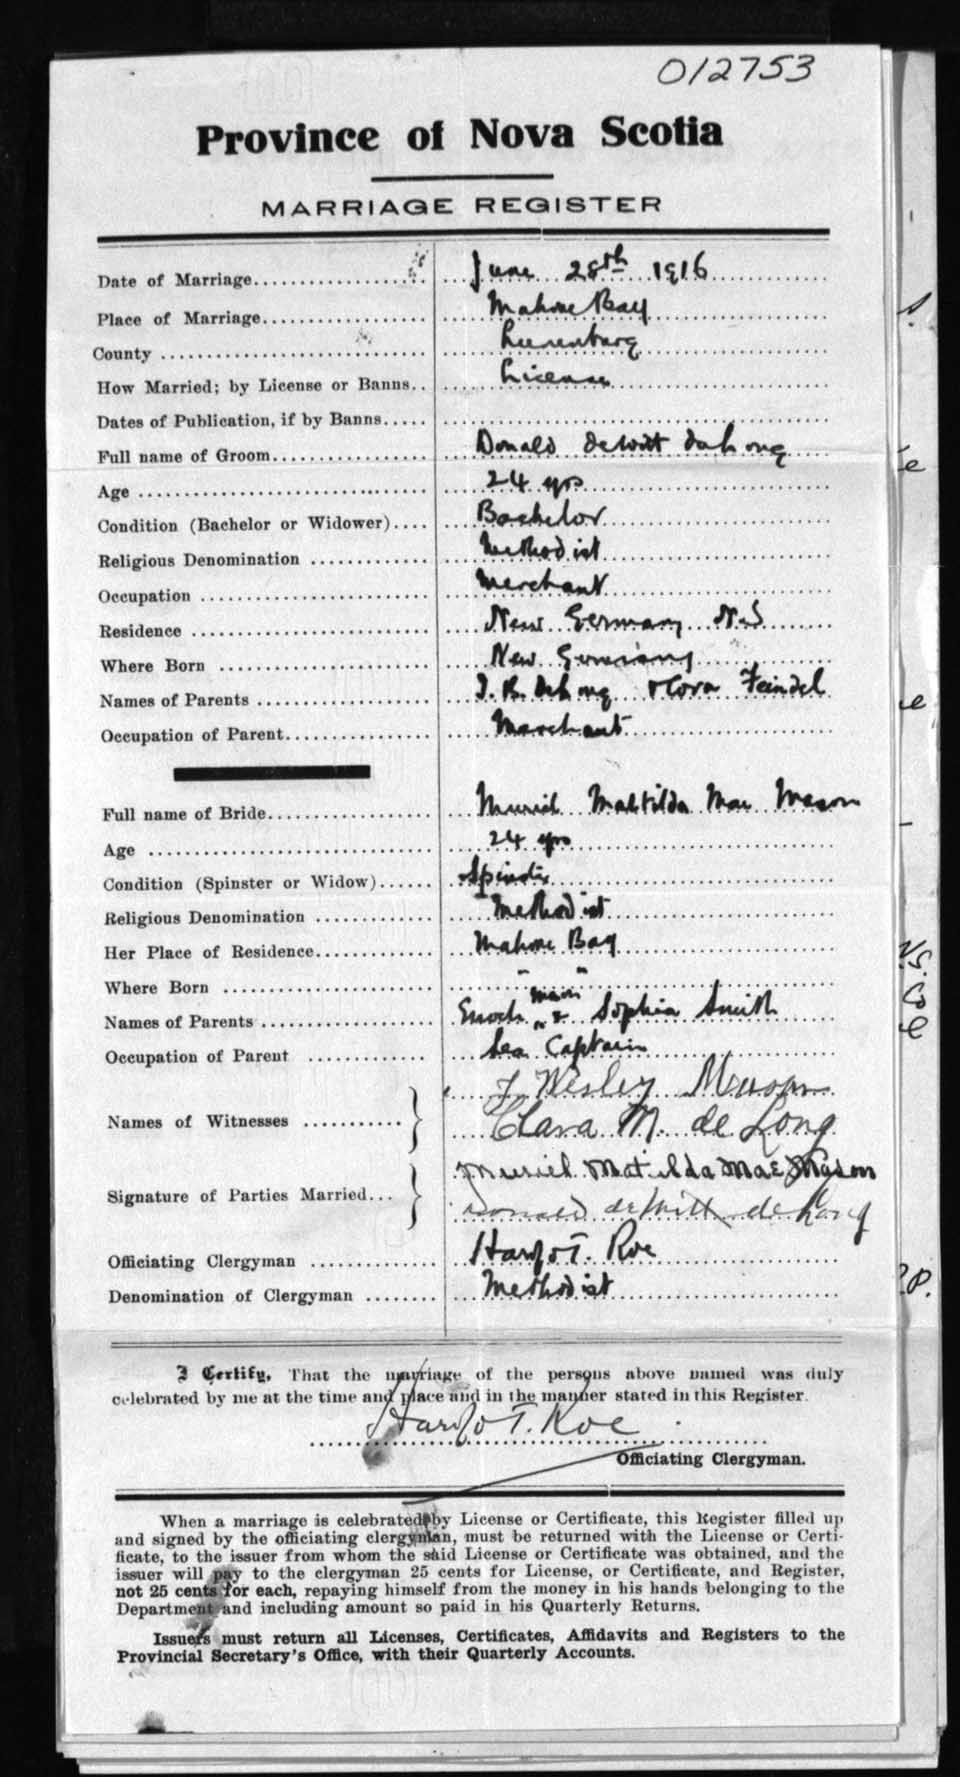 012753
Province of Nova Scotia
MARRIAGE REGISTER
Date of Marriage June 28th 1916
Place of Marriage Mahone Bay
County Lunenburg
How Married; by License or Banns License
Dates of Publication, if by Banns
Full name of Groom Donald deWitt deLong
Age 24 yrs
Condition (Bachelor or Widower) Bachelor
Religious Denomination Methodist
Occupation Merchant
Residence New Germany N.S
Where Born New Germany
Names of Parents DeLong & Cora Feindel
Occupation of Parent Merchant
Full name of Bride Muriel Maltilda Mae Mason
Age 24 yrs
Condition (Spinster or Widow) Spinster
Religious Denomination Methodist
Her Place of Residence Mahone Bay
Where Born " "
Names of Parents Enoch Mason & Sophia Smith
Occupation of Parent Sea Captain
Names of Witnesses J. Wesley Mason
Clara M. de Long
Signature of Parties Married Muriel Matilda Mae Mason
Donald deWitt de Long
Officiating Clergyman T. Roe
Denomination of Clergyman Methodist
I Certify, That the marriage of the persons above named was duly
celebrated by me at the time and place and in the manner stated in this Register.
T. Roe
Officiating Clergyman.
When a marriage is celebrated by License or Certificate, this Register filled up
and signed by the officiating clergyman, must be returned with the License or Certi-
ficate, to the issuer from whom the said License or Certificate was obtained, and the
issuer will pay to the clergyman 25 cents for License, or Certificate, and Register,
not 25 cents for each, repaying himself from the money in his hands belonging to the
Department and including amount so paid in his Quarterly Returns.
Issuers must return all Licenses, Certificates, Affidavits and Registers to the
Provincial Secretary's Office, with their Quarterly Accounts.